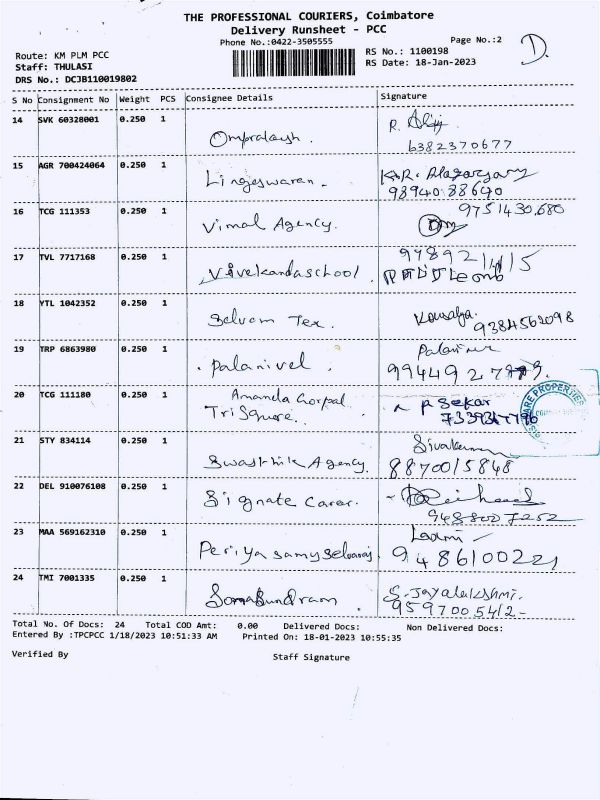 THE PROFESSIONAL COURIERS, Coimbatore
Delivery Runsheet - PCC
Phone No.:0422-3505555
Page No.:2
D.
Route: KM PLM PCC
RS No.: 1100198
Staff: THULASI
RS Date: 18-Jan-2023
DRS No.: DCJB110019802
S No Consignment No Weight PCS Consignee Details Signature
14 SVK 60328001 0.250 1 Omprakash. R.
6382370677
15 AGR 700424064 0.250 1 Lingeswaran. K.R. Alagarsamy
98940 88640
16 TCG 111353 0.250 1 Vimal Agency. 9751430680
17 TVL 7717168 0.250 1 Vivekandaschool.
18 YTL 1042352 0.250 1 Selvam Tex. Kousalya.
9384562098
19 TRP 6863980 0.250 1 Palanivel.
20 TCG 111180 0.250 1 Amanda Gorpal. P Sekar
TriSquare.
21 STY 834114 0.250 1 Swasthik Agency. Sivakumar
8870015848
22 DEL 910076108 0.250 1 Signate Carer.
9488007252
23 MAA 569162310 0.250 1 Periyasamy Selvaraj. Laxmi
9486100221
24 TMI 7001335 0.250 1 Somasundram. S. Jayalakshmi.
9597005412-
Total No. Of Docs: 24 Total COD Amt: 0.00 Delivered Docs: Non Delivered Docs:
Entered By :TPCPCC 1/18/2023 10:51:33 AM Printed On: 18-01-2023 10:55:35
Verified By Staff Signature